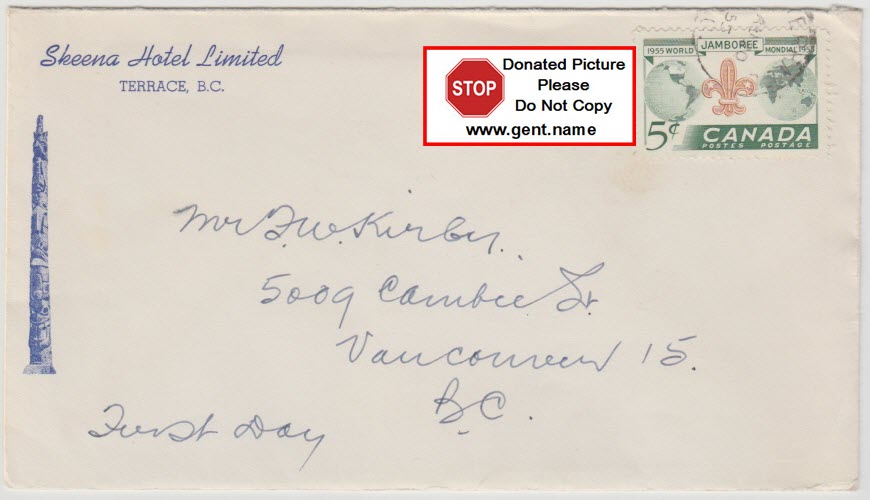 Skeena Hotel Limited
TERRACE, B.C.
STOP
Donated Picture
Please
Do Not Copy
www.gent.name
1955 WORLD JAMBOREE MONDIAL 1955
5¢ CANADA
POSTES POSTAGE
Mr F.W. Kirby.
5009 Cambie St.
Vancouver 15.
B.C.
First Day